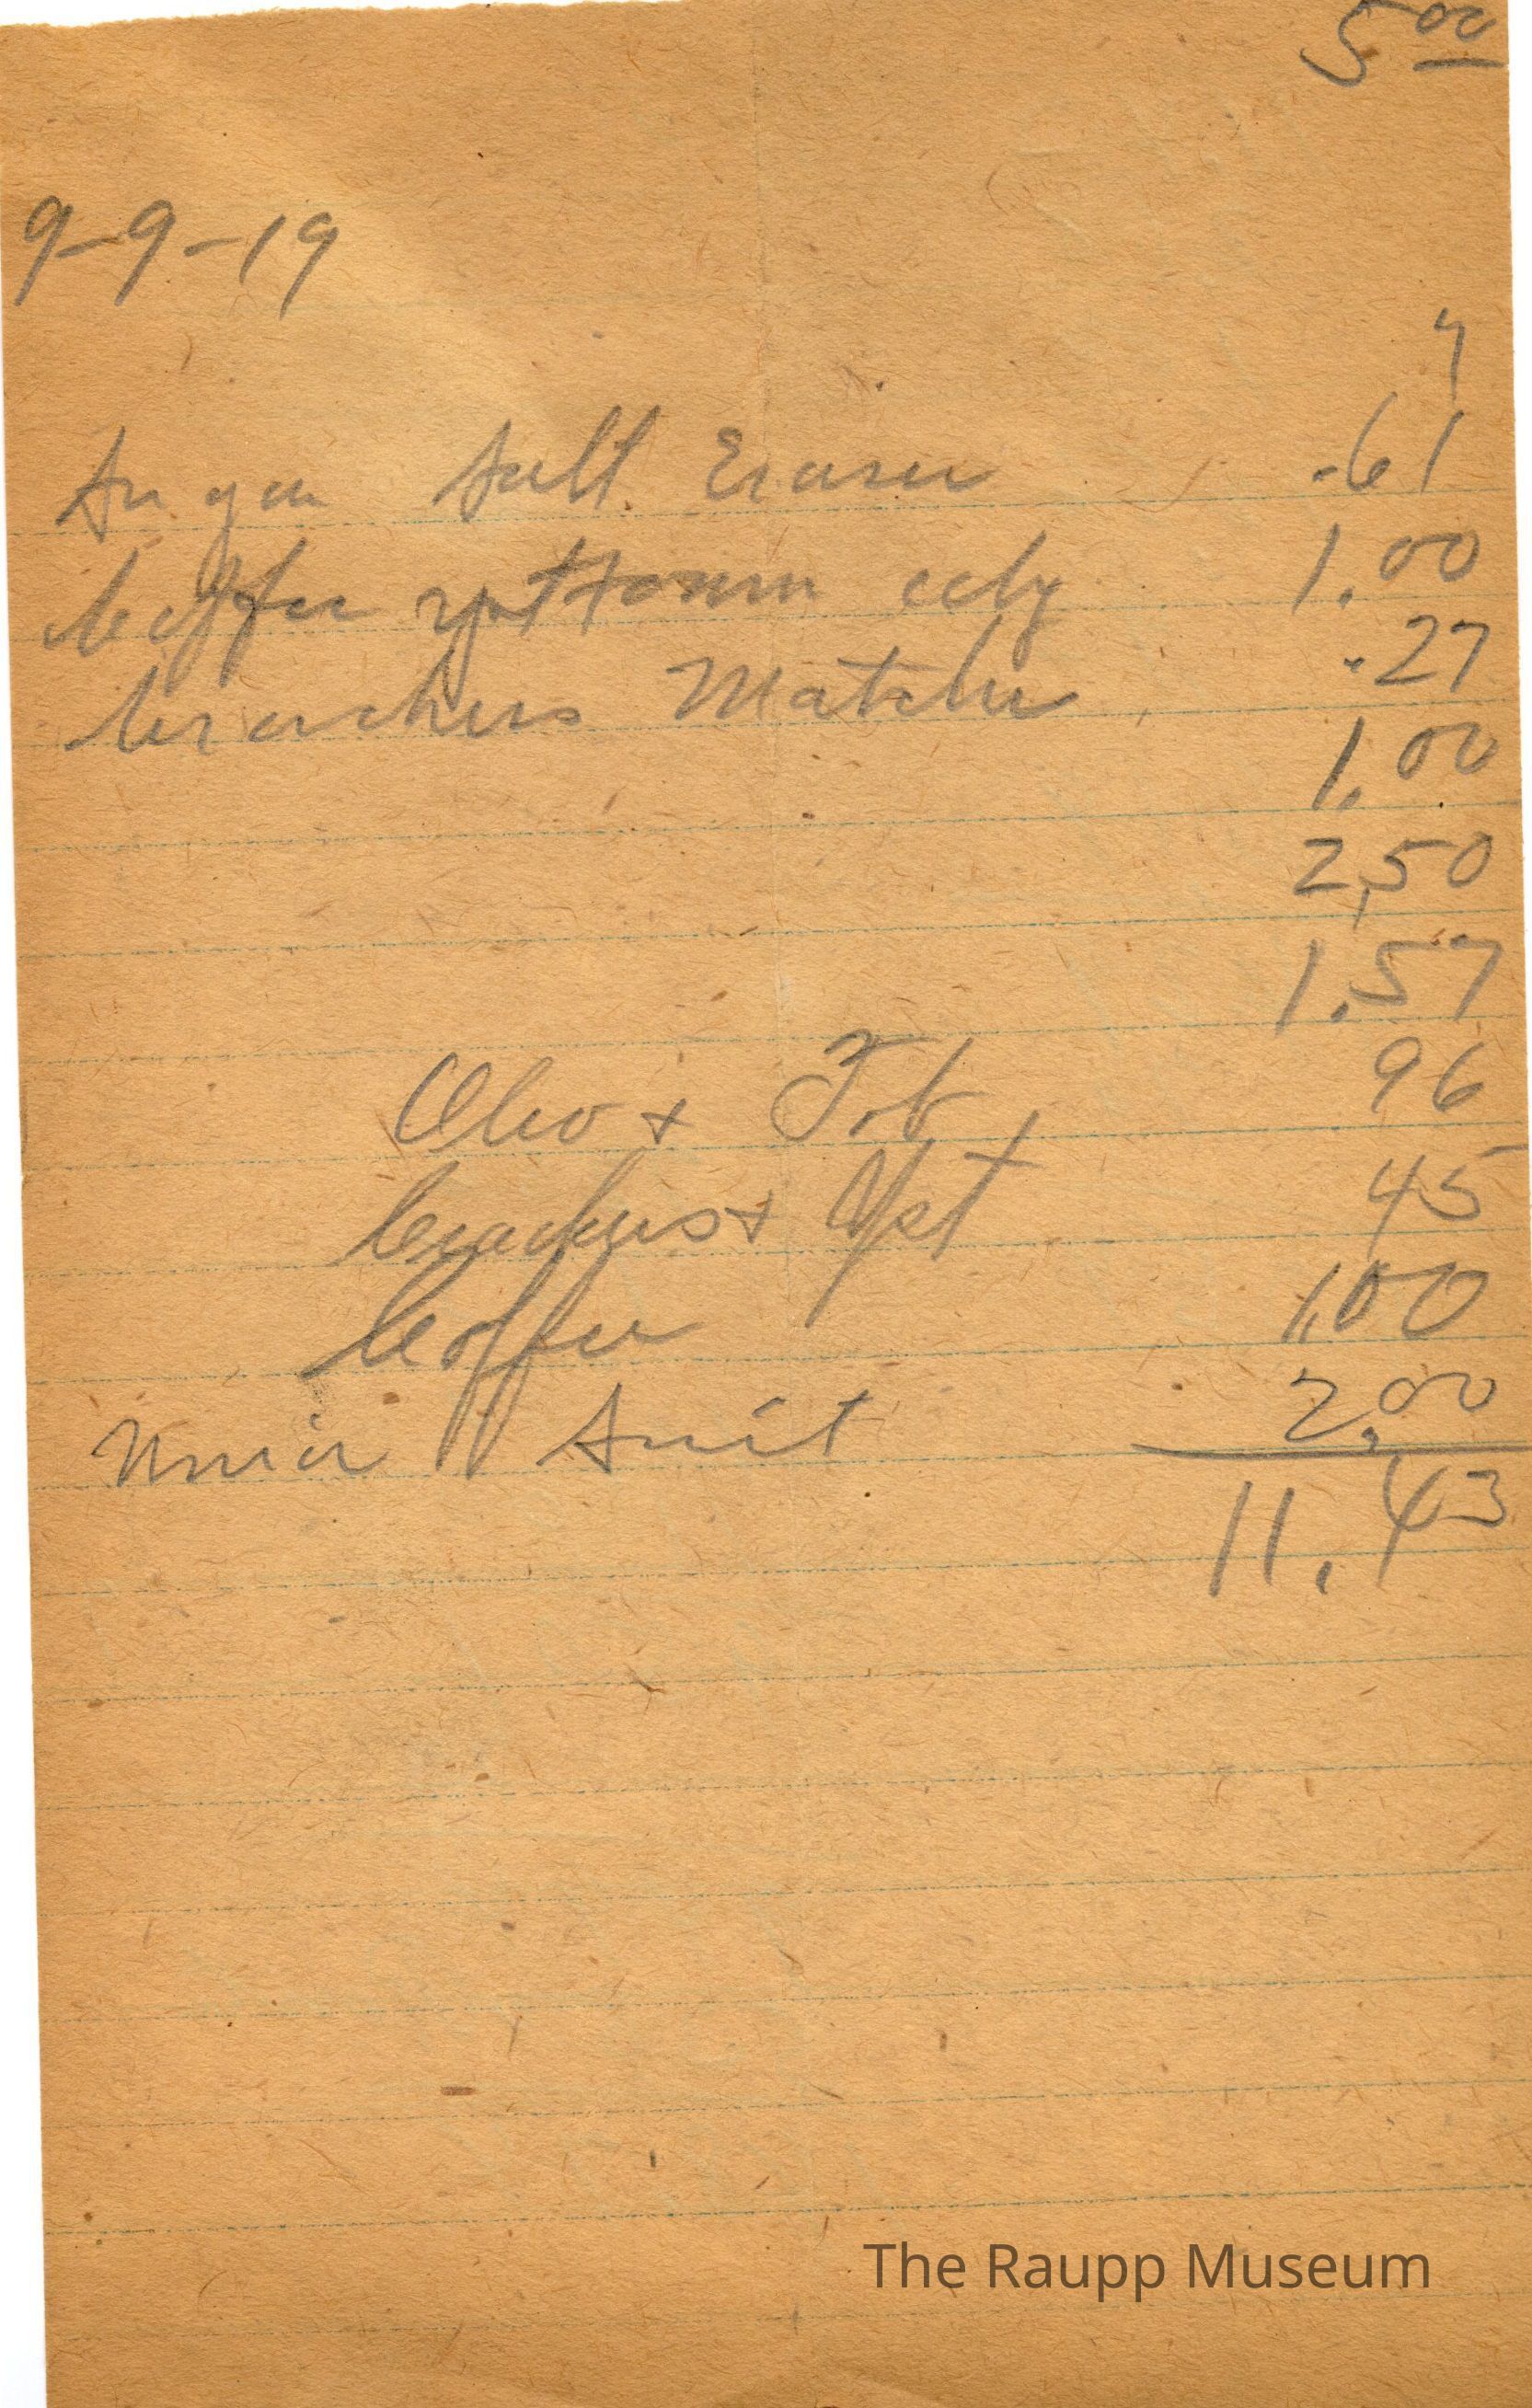 5 00
9-9-19
7
Sugar Salt Eraser .61
Coffee yst + corn 1.00
Crackers Matches .27
1.00
2,50
1.57
Oleo + Tob 96
Crackers + Yst 45
Coffee 1,00
Union Suit 2.00
11.43
The Raupp Museum